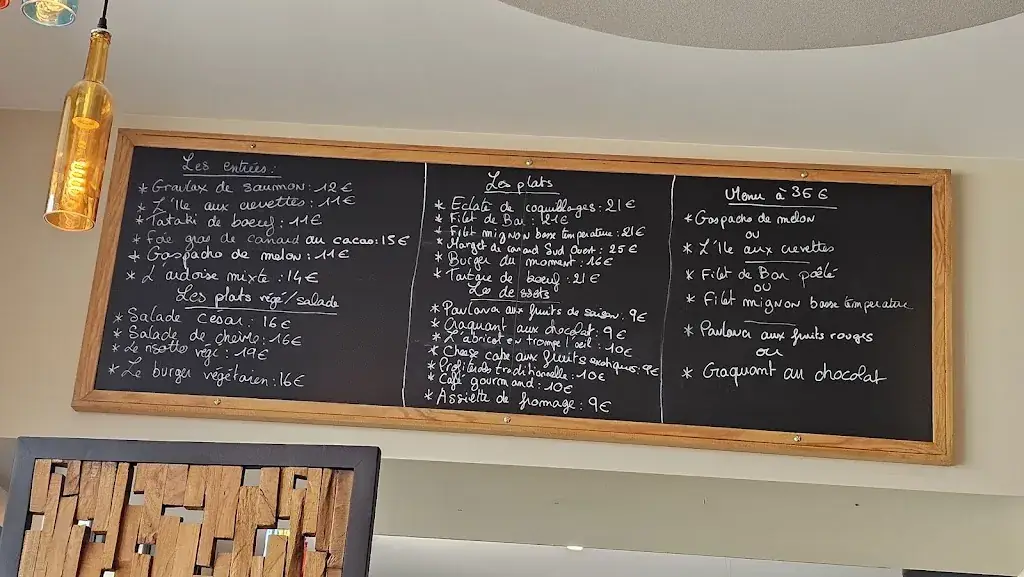 Les entrées:
* Gravlax de saumon: 12€
* L'île aux crevettes: 11€
* Tataki de boeuf: 11€
* Foie gras de canard au cacao: 15€
* Gaspacho de melon: 11€
* L'ardoise mixte: 14€
Les plats végé/salade
* Salade César: 16€
* Salade de chèvre: 16€
* Le risotto végé: 19€
* Le burger végétarien: 16€
Les plats
* Eclate de coquillages: 21€
* Filet de Bar: 21€
* Filet mignon basse température: 21€
* Margret de canard Sud Ouest: 25€
* Burger du moment: 16€
* Tartare de boeuf: 21€
Les desserts
* Pavlova aux fruits de saison: 9€
* Craquant aux chocolat: 9€
* L'abricot en trompe l'oeil: 10€
* Cheese cake aux fruits exotiques: 9€
* Profiteroles traditionnelle: 10€
* Café gourmand: 10€
* Assiette de fromage: 9€
Menu à 36€
* Gaspacho de melon
ou
* L'île aux crevettes
* Filet de Bar poêlé
ou
* Filet mignon basse température
* Pavlova aux fruits rouges
ou
* Craquant au chocolat